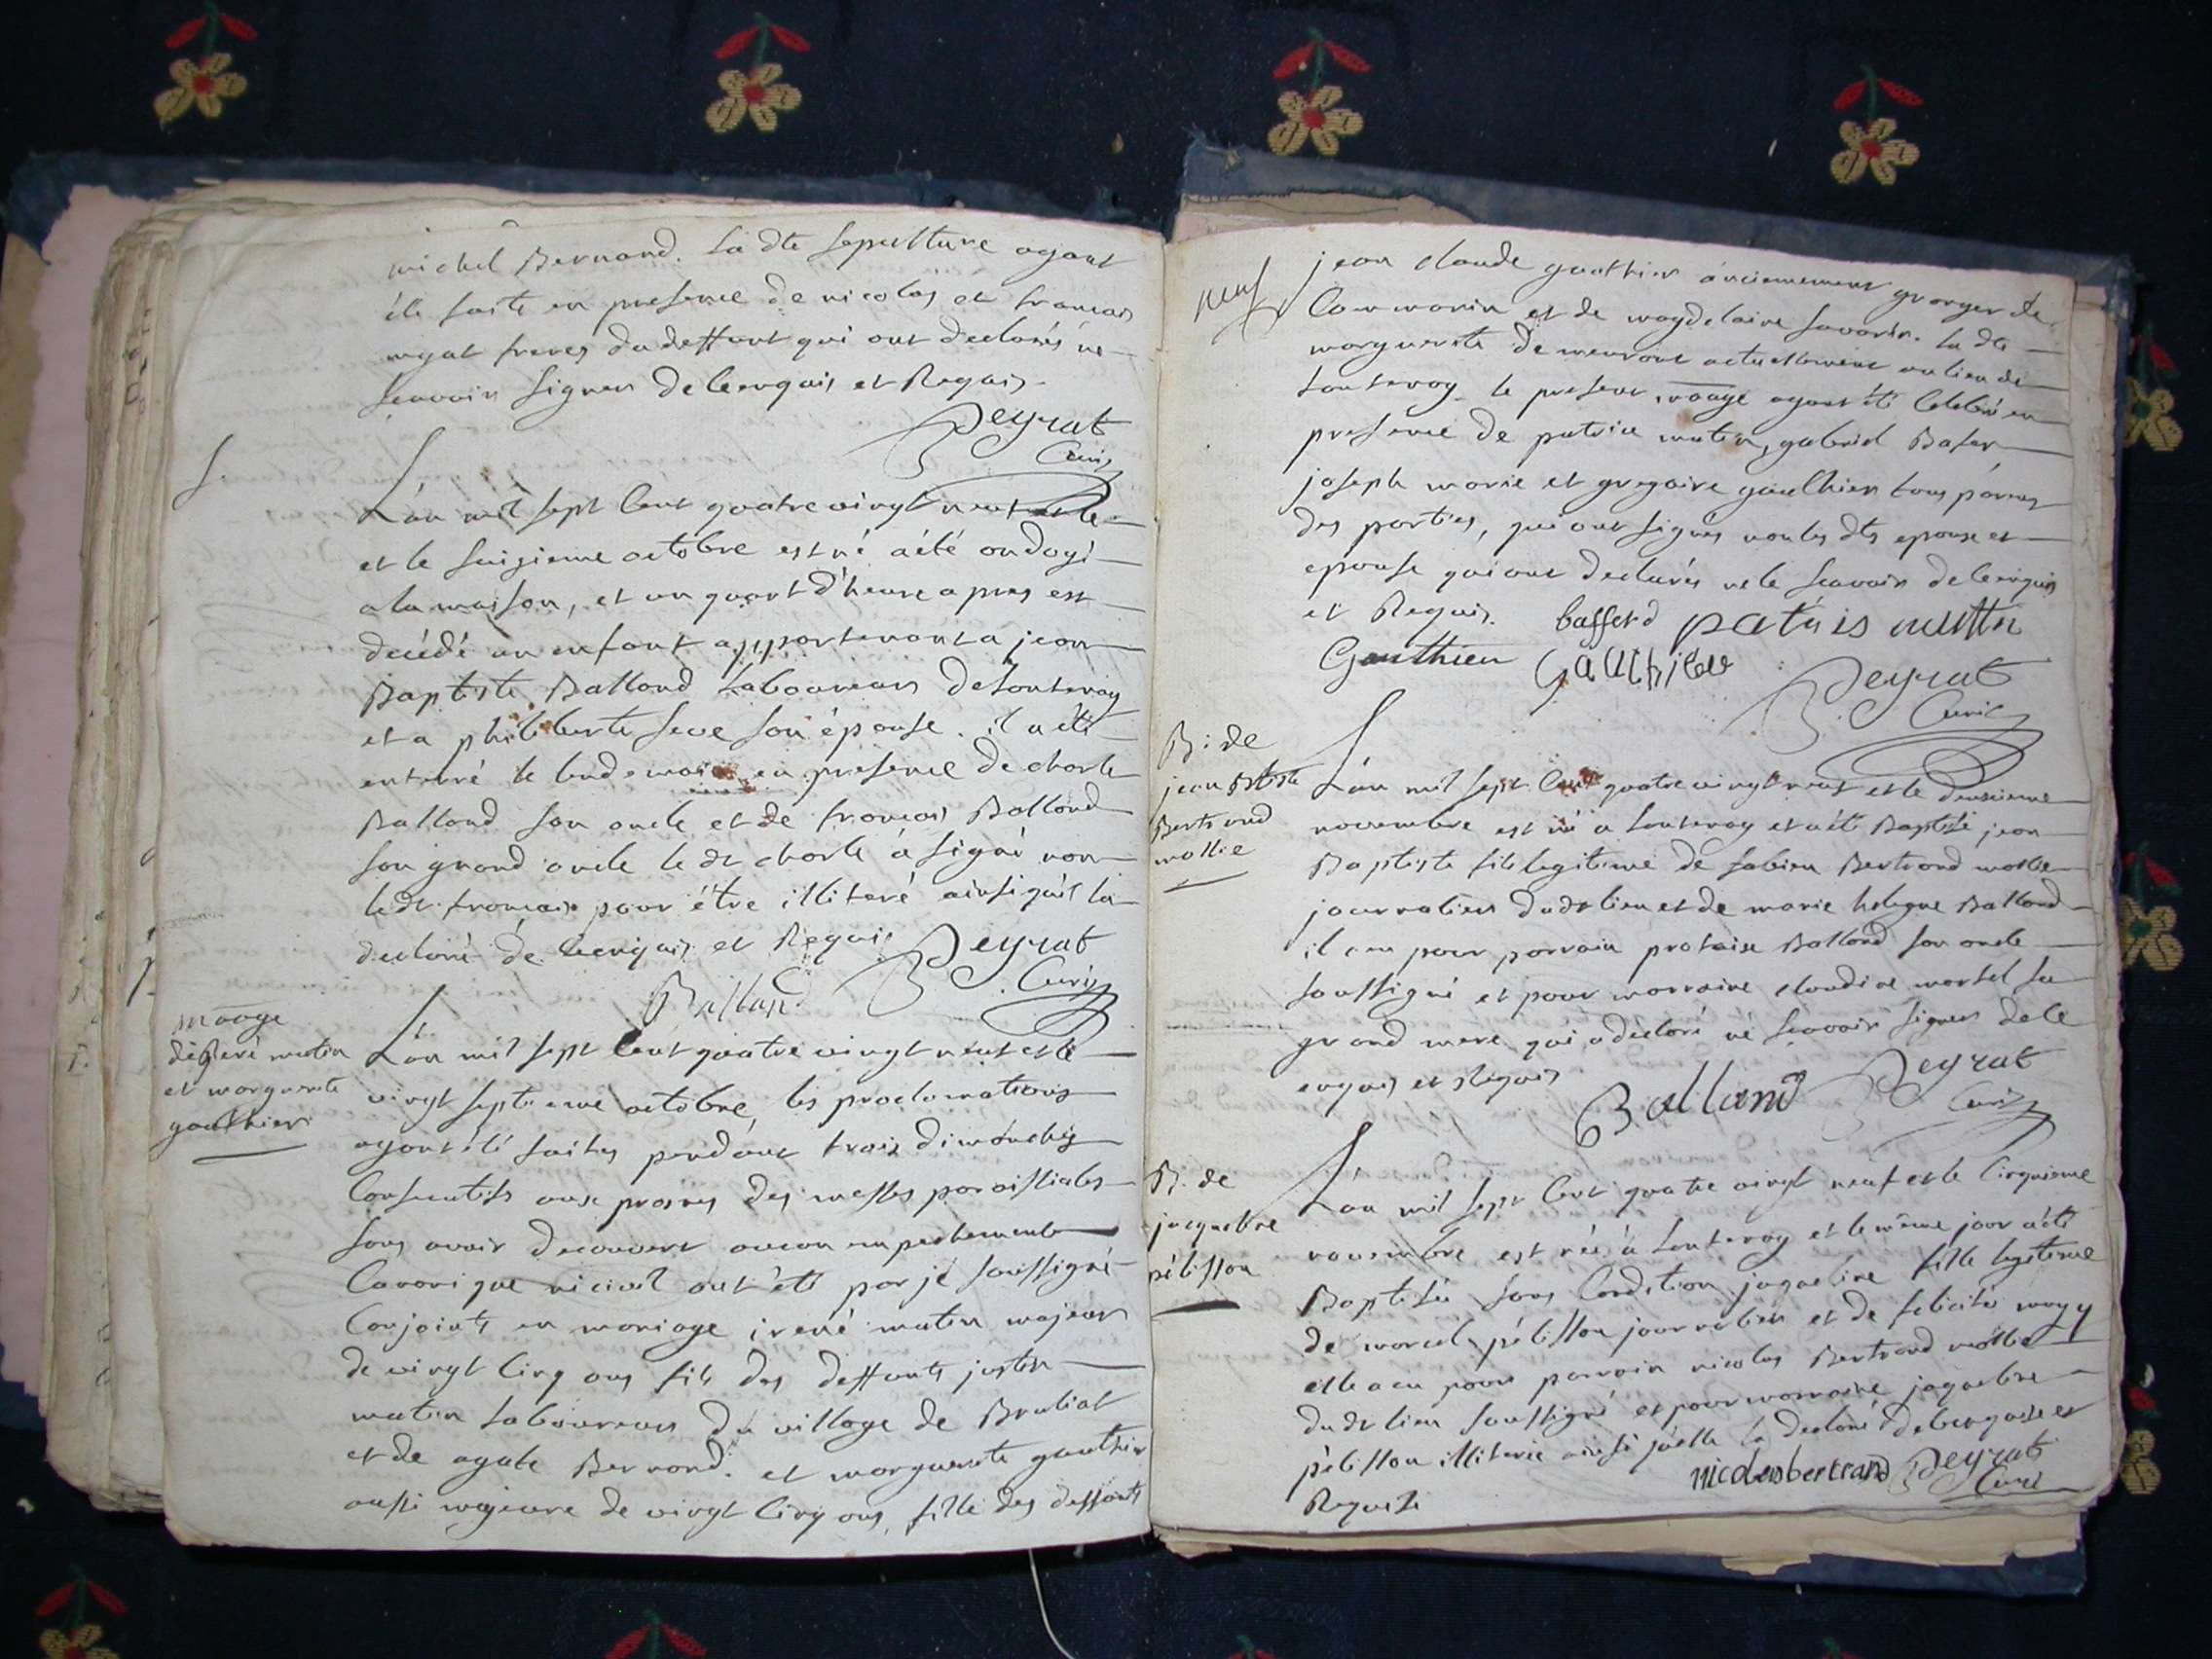 michel Bernand. la dte sepulture ayant
été faite en presence de nicolas et francois
myat freres du deffunt qui ont declarés ne
scavoir signer de ce enquis et Requis.
Peyrat
Curé
S.
L'an mil sept cent quatre vingt neuf et le
et le seizieme octobre est né a été ondoyé
a la maison, et un quart d'heure apres est
decédé un enfant appartenant a jean
Baptiste Balland laboureur de
et a philiberte seve son épouse. il a été
enterré le lendemain en presence de charle
Balland son oncle et de francois Balland
son grand oncle le dt charle a signé non
le dt francois pour être illiteré ainsi qu'il la
declaré de ce enquis et Requis Peyrat
Balland Curé
maage
de irené mutin
et marguerite
gauthier
L'an mil sept cent quatre vingt neuf et le
vingt septieme octobre, les proclamations
ayant été faites pendant trois dimanches
consecutifs aux prones des messes paroissiales
sans avoir decouvert aucun empechement
canonique ni civil ont été par je soussigné
conjoints en mariage irené mutin majeur
de vingt cinq ans fils des deffunts justin
mutin laboureur du village de Braliat
et de agate Bernand. et marguerite gauthier
aussi majeure de vingt cinq ans, fille des deffunts
neuf
jean claude gauthier anciennement granger de
Cormarin et de magdelaine savarin. la dte
marguerite demeurant actuellement au lieu de
le present maage ayant été celebré en
presence de patrice mutin, gabriel Bafer
joseph marie et gregoire gauthier tous parens
des parties, qui ont signés non les dts epoux et
epouse qui ont declarés ne le scavoir de ce enquis
et Requis. bafferd patris muttn
Gauthier Gauthier
Peyrat
Curé
B: de
jean Btiste
Bertrand
mollie
L'an mil sept cent quatre vingt neuf et le deuxieme
novembre est né a et a été Baptisé jean
Baptiste fils legitime de fabien Bertrand mollie
journalier du dt lieu et de marie helegne Balland
il a eu pour parrain protaise Balland son oncle
soussigné et pour marraine claudine martel sa
grand mere qui a declaré ne scavoir signer de ce
enquis et Requis
Balland Peyrat
Curé
B. de
jacqueline
pélisson
L'an mil sept cent quatre vingt neuf et le cinquieme
novembre est née à et le même jour a été
Baptisée sous condition jaqueline fille legitime
de marcel pélisson journalier et de felicité
elle a eu pour parrain nicolas Bertrand mollie
du dt lieu soussigné et pour marraine jaqueline
pélisson illiterée ainsi qu'elle la declaré de ce enquise et
Requise nicolas bertrand Peyrat
Curé